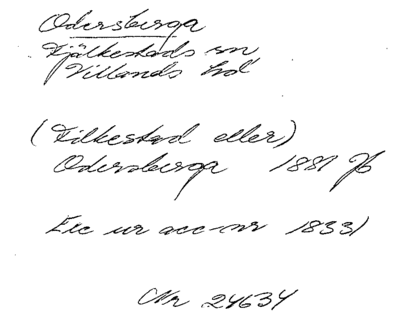 Odersberga
Fjälkestads sn
Villands hd
(Filkestad eller)
Odersberga 1881
Exc ur acc-nr 1833)
Nr 24634